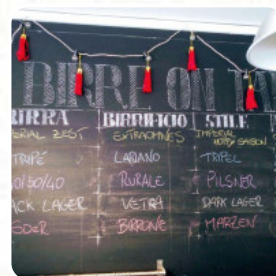 BIRRE ON TA
BIRRA BIRRIFICIO STILE
ERIAL ZEST EXTRAOMNES IMPERIAL HOPPY SAISON
TRIPÉ LARIANO TRIPEL
50/50/40 RURALE PILSNER
ACK LAGER VETRA DARK LAGER
BIRRONE MARZEN